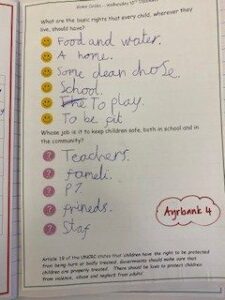 Circles - Wednesday 10th December
What are the basic rights that every child, wherever they
live, should have?
Food and water.
A home.
Some clean chose.
School.
To play.
To be fit.
Whose job is it to keep children safe, both in school and in
the community?
? Teachers.
? fameli.
? P7
? frineds.
? Staf
Ayrbank 4
Article 19 of the UNCRC states that 'children have the right to be protected
from being hurt or badly treated. Governments should make sure that
children are properly treated. There should be laws to protect children
from violence, abuse and neglect from adults'